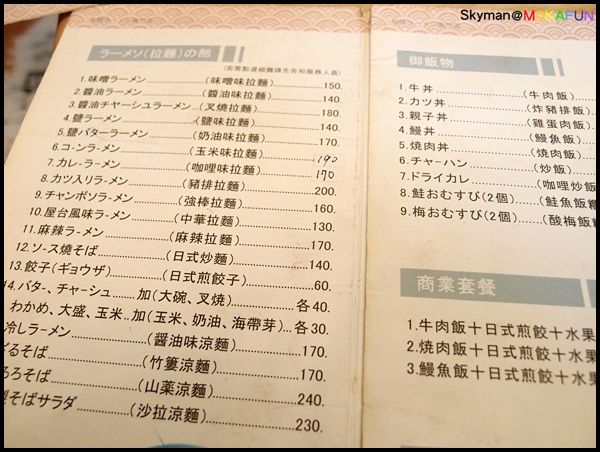 Skyman@MOKAFUN
ラーメン(拉麵)の部
(若需點選細麵請先告知服務人員)
1.味噌ラーメン (味噌味拉麵) 150.
2.醬油ラーメン (醬油味拉麵) 140.
3.醬油チャーシュラーメン (叉燒拉麵) 180.
4.鹽ラーメン (鹽味拉麵) 140.
5.鹽バターラーメン (奶油味拉麵) 170.
6.コーンラーメン (玉米味拉麵) 190
7.カレーラーメン (咖哩味拉麵) 170
8.カツ入りラーメン (豬排拉麵) 200.
9.チャンポンラーメン (強棒拉麵) 160.
10.屋台風味ラーメン (中華拉麵) 130.
11.麻辣ラーメン (麻辣拉麵) 170.
12.ソース燒そば (日式炒麵) 140.
13.餃子(ギョウザ) (日式煎餃子) 60.
14.バター、チャーシュ 加(大碗、叉燒) 各40.
わかめ、大盛、玉米 加(玉米、奶油、海帶芽) 各30.
冷しラーメン (醬油味涼麵) 170.
ざるそば (竹簍涼麵) 170.
ろろそば (山藥涼麵) 240.
そばサラダ (沙拉涼麵) 230.
御飯物
1.牛丼 (牛肉飯)
2.カツ丼 (炸豬排飯)
3.親子丼 (雞蛋肉飯)
4.鰻丼 (鰻魚飯)
5.燒肉丼 (燒肉飯)
6.チャーハン (炒飯)
7.ドライカレ (咖哩炒飯
8.鮭おむすび(2個) (鮭魚飯糰
9.梅おむすび(2個) (酸梅飯糰
商業套餐
1.牛肉飯+日式煎餃+水果
2.燒肉飯+日式煎餃+水果
3.鰻魚飯+日式煎餃+水果